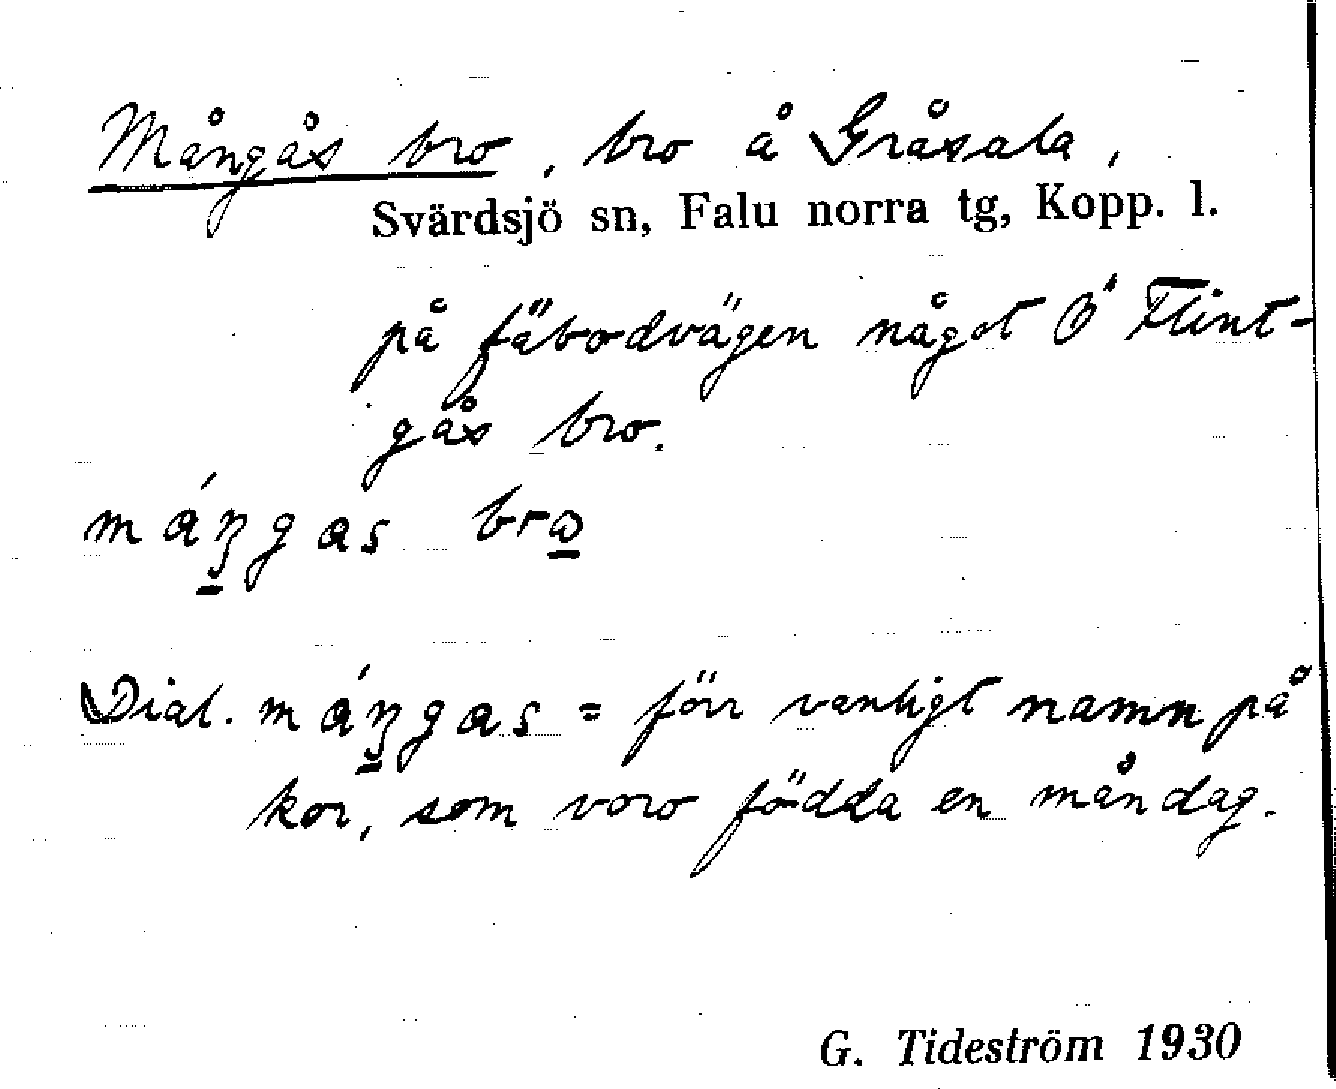 Mångås bro, bro å Gråsala,
Svärdsjö sn, Falu norra tg, Kopp. l.
på fäbodvägen något Ö Flint-
gås bro.
máŋgas bro
Dial. máŋgas = förr vanligt namn på
kor, som voro födda en måndag.
G. Tideström 1930